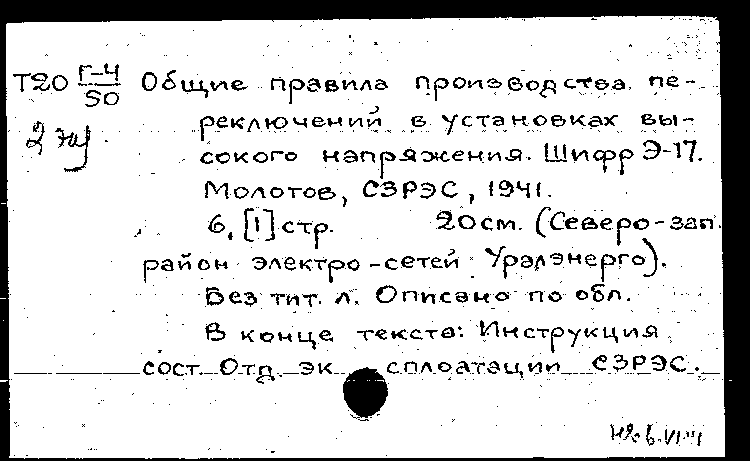 Т20 Г-4/50 Общие правила производства пе-
2 экз. реключений в установках вы-
сокого напряжения. Шифр Э-17.
Молотов, СЗРЭС, 1941.
6, [1] стр. 20 см. (Северо-зап.
район электро-сетей Уралэнерго).
Без тит. л. Описано по обл.
В конце текста: Инструкция
сост. Отд. эксплоатации СЗРЭС.